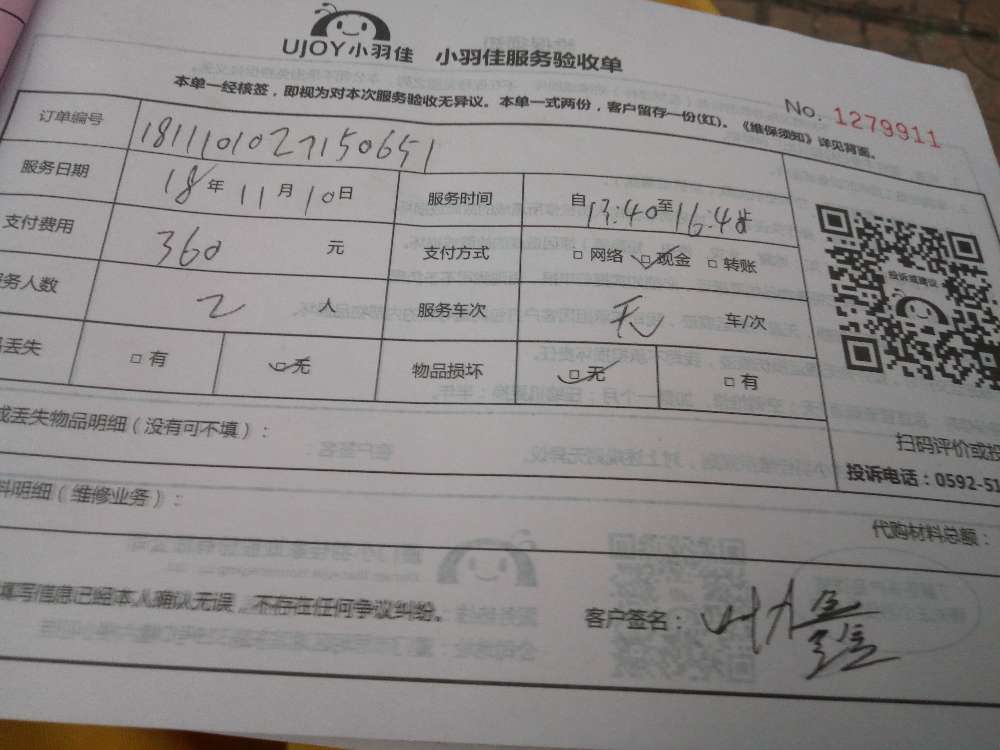 UJOY小羽佳 小羽佳服务验收单
本单一经核签，即视为对本次服务验收无异议。本单一式两份，客户留存一份(红)。《维保须知》详见背面。
No. 1279911
订单编号 1811101027150651
服务日期 18年11月10日 服务时间 自13:40至16:48止
支付费用 360元 支付方式 □网络 ☑现金 □转账
务人数 2人 服务车次 无 车/次
丢失 □有 ☑无 物品损坏 ☑无 □有
投诉或建议
或丢失物品明细（没有可不填）：
扫码评价或投
投诉电话：0592-51
料明细（维修业务）：
代购材料总额：
填写信息已经本人确认无误，不存在任何争议纠纷。 客户签名：